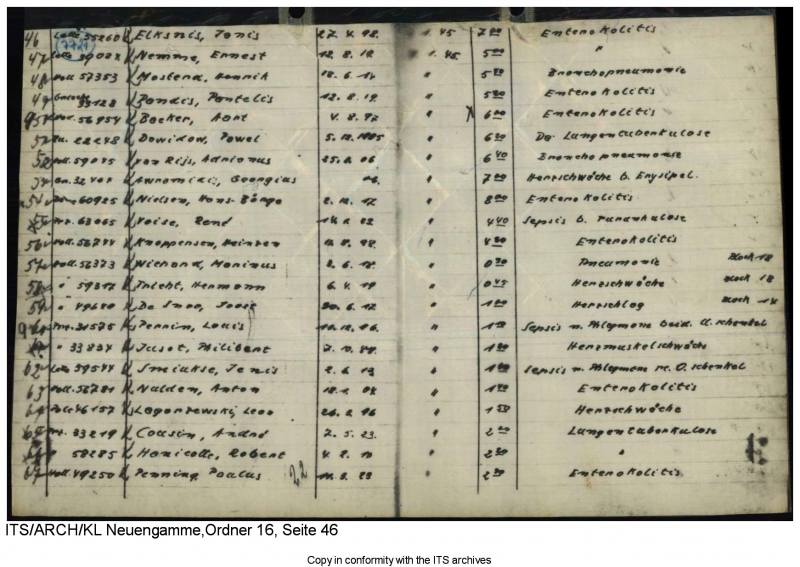 46 Lett. 55260 Elksnis, Tonis 27. 4. 98. 1. 45 7 00 Enterokolitis
(7721)
47 Nemme, Ernest 12. 8. 19. " 1. 45. 5 00 "
48 Holl. 57353 Mostend, Hennik 18. 6. 14 " 5 20 Bronchopneumonie
49 33128 Pandis, Pantelis 12. 8. 19. " 5 20 Enterokolitis
56954 Becker, Aart 4. 8. 97 " 6 00 Enterokolitis
22248 Dawidow, Pawel 5. 12. 1905 " 6 20 Do. Lungentuberkulose
52 Holl. 59075 van Rijs, Adrianus 25. 2. 06 " 6 40 Bronchopneumonie
32401 Georgius " 7 00 Herzschwäche b. Erysipel.
54 60925 Nielsen, Hans-Börge 2. 12. 17 " 8 00 Enterokolitis
55 63065 Voise, René " 4 40 Sepsis b.
56 Holl. 56744 Knoppensen, Heinren " Enterokolitis
57 Holl. 56373 Wichand, Maninus 2. 6. 18. " 0 30 Pneumonie Block 18
58 " 59317 Inlcht, Hermann 6. 4. 19 " 0 45 Herzschwäche Block 18
59 " 49680 De Snoo, Joost 20. 6. 17 " 1 00 Herzschlag Block 14
31575 Pennin, Louis 10. 12. 06. " 1 10 Sepsis n. Phlegmone beid. U.schenkel
" 33834 Jusot, Philibert " 1 00 Herzmuskelschwäche
62 39544 Smiukse, Jenis 2. 6. 13 " 1 00 Sepsis n. Phlegmone re. O.schenkel
63 Holl. 56781 Nulden, Anton 18. 1. 04 " 1 40 Enterokolitis
64 Pole 46157 Lagonzewski, Leon 26. 2. 16 " 1 50 Herzschwäche
65 Fr. 33219 Cousin, André 7. 5. 23. " 2 00 Lungentuberkulose
" 58285 Hanicotte, Robert 4. 2. 10 " 2 20 "
67 Holl. 49250 Penning, Paulus 22 11. 3. 23 " 2 30 Enterokolitis
ITS/ARCH/KL Neuengamme,Ordner 16, Seite 46
Copy in conformity with the ITS archives